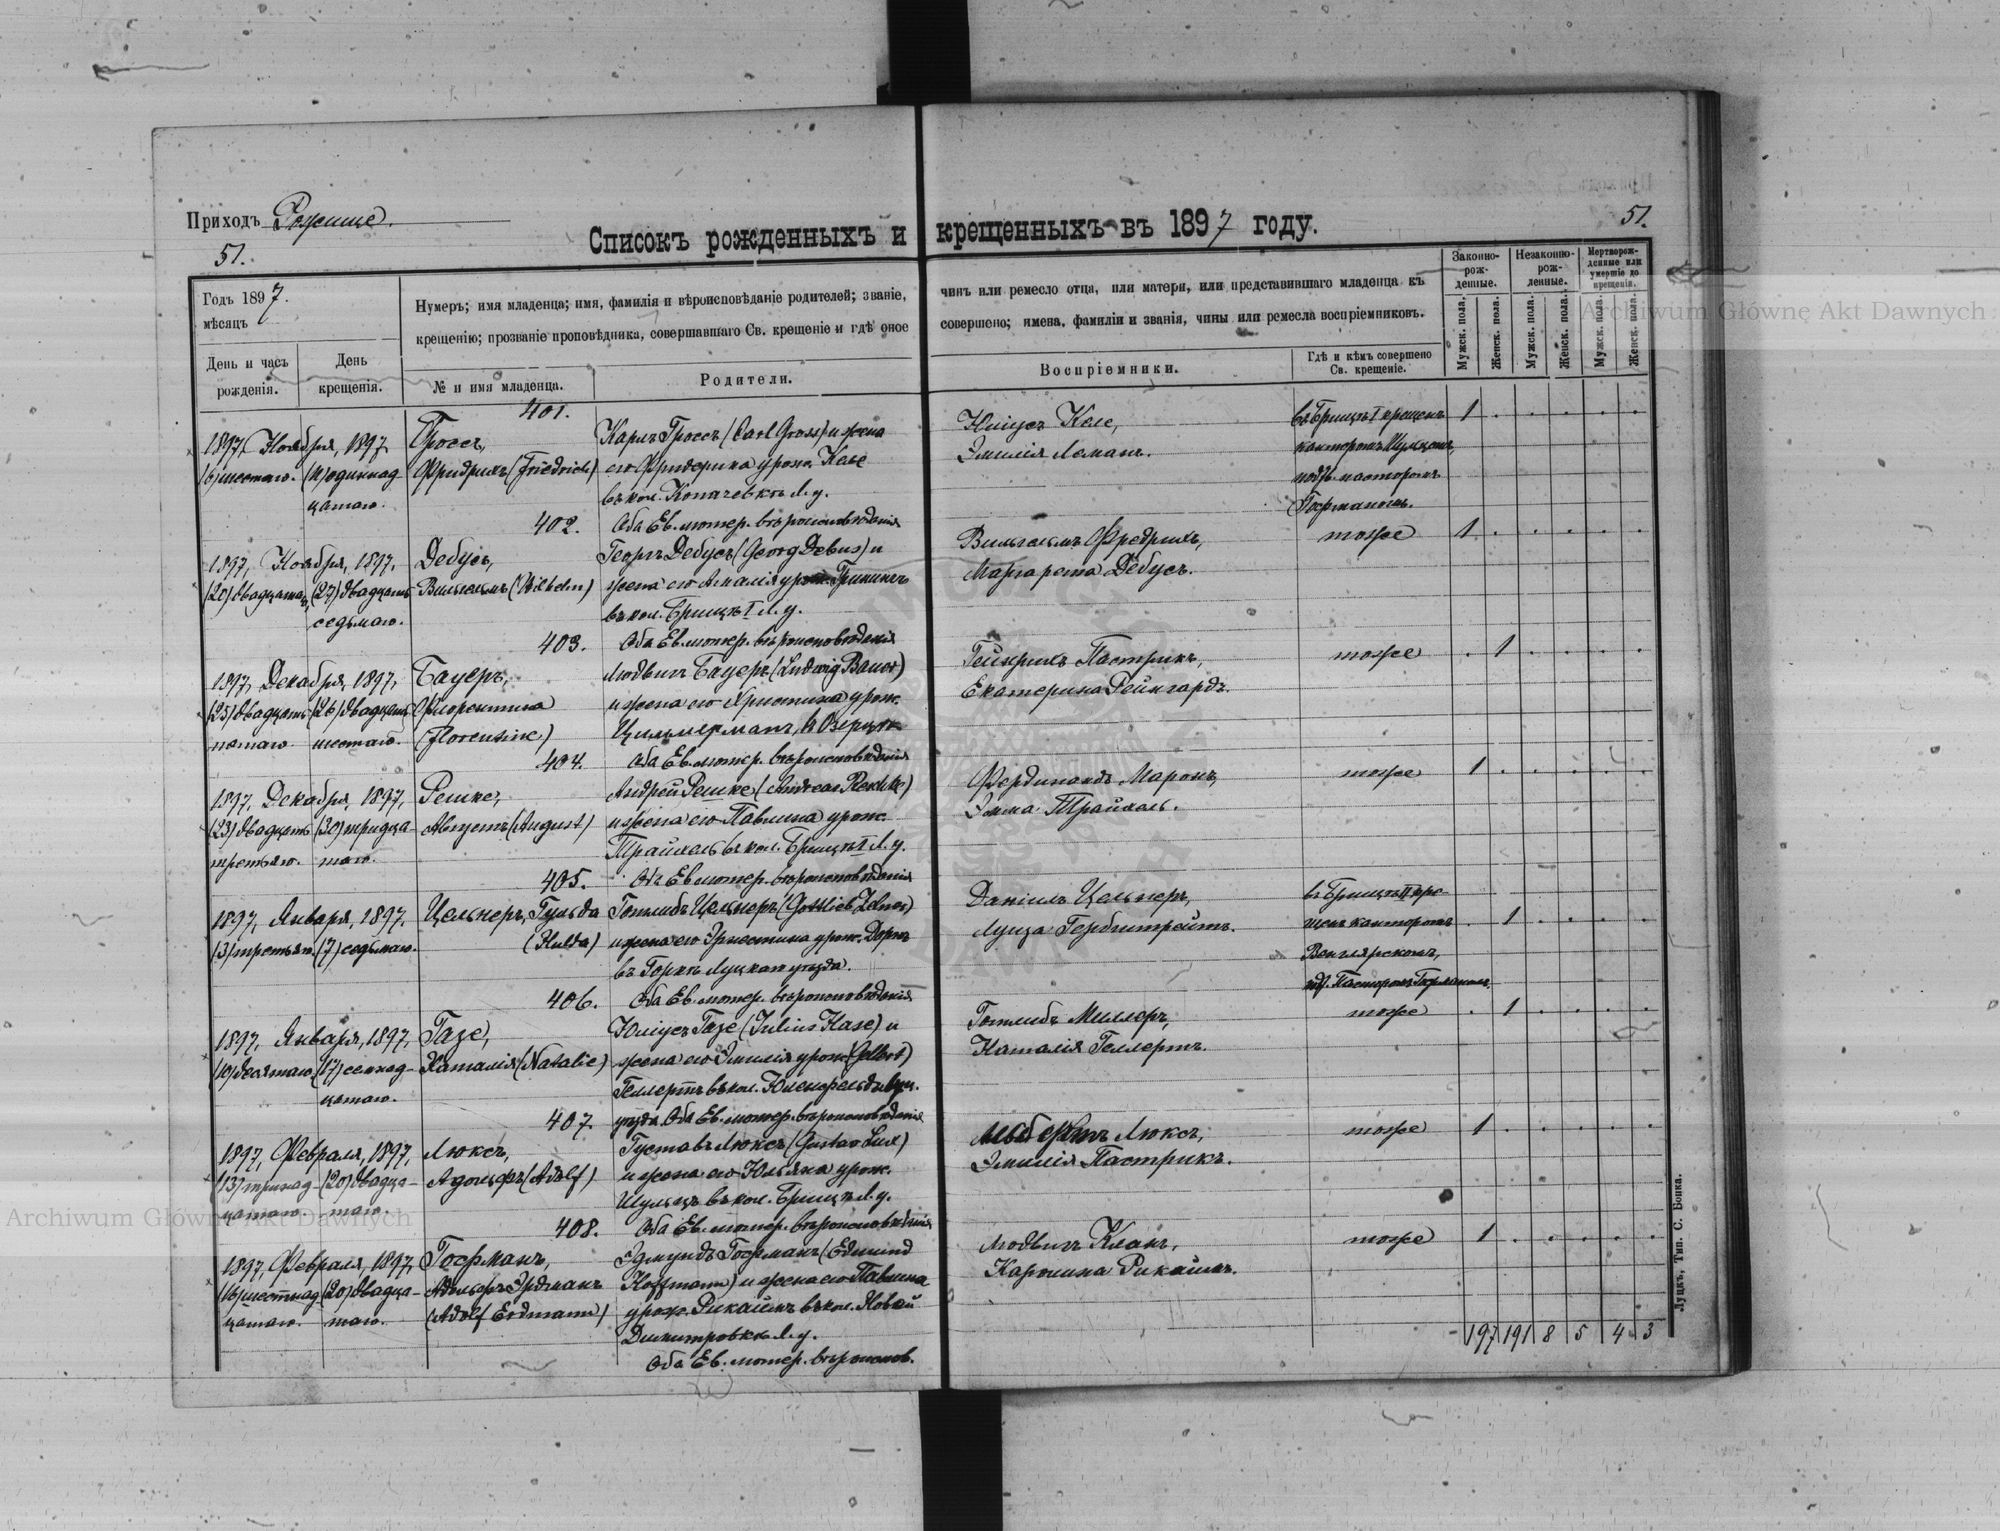 Приходъ Рожище.
51.
51.
Списокъ рожденныхъ и крещенныхъ въ 1897 году.
Годъ 1897.
мѣсяцъ
День и часъ рожденія.
День крещенія.
Нумеръ; имя младенца; имя, фамилія и вѣроисповѣданіе родителей; званіе,
крещенію; прозваніе проповѣдника, совершавшаго Св. крещеніе и гдѣ оное
№ и имя младенца.
Родители.
чинъ или ремесло отца, или матери, или представившаго младенца къ
совершено; имена, фамиліи и званія, чины или ремесла воспріемниковъ.
Воспріемники.
Гдѣ и кѣмъ совершено
Св. крещеніе.
Законно-рож-денные.
Незаконно-рож-денные.
Мертворож-денные или умершіе до крещенія.
Мужск. пола.
Женск. пола.
Мужск. пола.
Женск. пола.
Мужск. пола.
Женск. пола.
401.
1897, Ноября, 1897
(6) шестаго. (11) одиннад-
цатаго.
Гроссъ,
Фридрихъ (Friedrich)
Карлъ Гроссъ (Carl Gross) и жена
его Фридерика урож. Кебе
въ кол. Копачевкѣ Л. у.
Оба Ев. лютер. вѣроисповѣданія
Юліусъ
Эмилія Леманъ.
въ Брищѣ I крещенъ
канторомъ
подтв. пасторомъ
Гофманомъ.
1
402.
1897, Ноября, 1897.
(20) двадцатаго, (27) двадцать
седьмаго.
Дебусъ,
Вильгельмъ (Wilhelm)
Георгъ Дебусъ (Georg Debus) и
жена его Амалія урож.
въ кол. Брищѣ I Л. у.
Оба Ев. лютер. вѣроисповѣданія
Вильгельмъ Фредрихъ,
Маргарета Дебусъ.
тоже
1
403.
1897, Декабря, 1897,
(25) двадцать (26) двадцать
пятаго. шестаго.
Бауеръ,
Флорентина
(Florentine)
Людвигъ Бауеръ (Ludwig Bauer)
и жена его Христина урож.
Цильмерманъ,
Оба Ев. лютер. вѣроисповѣданія
Гейнрихъ Пастрикъ,
Екатерина Рейнгардъ.
тоже
1
404.
1897, Декабря, 1897,
(23) двадцать (30) тридца-
третьяго. таго.
Решке,
Августъ (August)
Андрей Решке (Andreas Reschke)
и жена его Павлина урож.
Трайхель въ кол. Брищѣ I Л. у.
Оба Ев. лютер. вѣроисповѣданія
Фердинандъ Маронъ,
Эмма Трайхель.
тоже
1
405.
1897, Января, 1897.
(3) третьяго. (7) седьмаго.
Цельнеръ, Гульда
(Hulda)
Готлибъ Цельнеръ (Gottlieb Zelner)
и жена его Эрнестина урож.
въ Горкѣ Луцкаго уѣзда.
Оба Ев. лютер. вѣроисповѣданія
Даніилъ Цельнеръ,
Луиза Гербштрейтъ.
въ Брищѣ II кре-
щенъ канторомъ
Венглярскомъ,
подтв. Пасторомъ Гофманомъ.
1
406.
1897, Января, 1897,
(10) десятаго (17) семнад-
цатаго.
Газе,
Наталія (Natalie)
Юліусъ Газе (Julius Hase) и
жена его Эмилія урож.
Геллертъ въ кол.
уѣзда. Оба Ев. лютер. вѣроисповѣданія
Готлибъ Миллеръ,
Наталія Геллертъ.
тоже
1
407.
1897, Февраля, 1897,
(13) тринад- (20) двадца-
цатаго. таго.
Люксъ,
Адольфъ (Adolf)
Густавъ Люксъ (Gustav Lux)
и жена его Юльяна урож.
Шульцъ въ кол. Брищѣ Л. у.
Оба Ев. лютер. вѣроисповѣданія
Альбертъ Люксъ,
Эмилія Пастрикъ.
тоже
1
408.
1897, Февраля, 1897,
(16) шестнад- (20) двадца-
цатаго. таго.
Гофманъ,
Адольфъ Эрдманъ
(Adolf Erdmann)
Эдмундъ Гофманъ (Edmund
Hoffmann) и жена его Павлина
урож. въ кол. Новой
Димитровкѣ Л. у.
Оба Ев. лютер. вѣроиспов.
Людвигъ Кланъ,
Каролина
тоже
1
197 191 8 5 4 3
Луцкъ, Тип. С. Бонка.
Archiwum Główne Akt Dawnych
Archiwum Główne Akt Dawnych